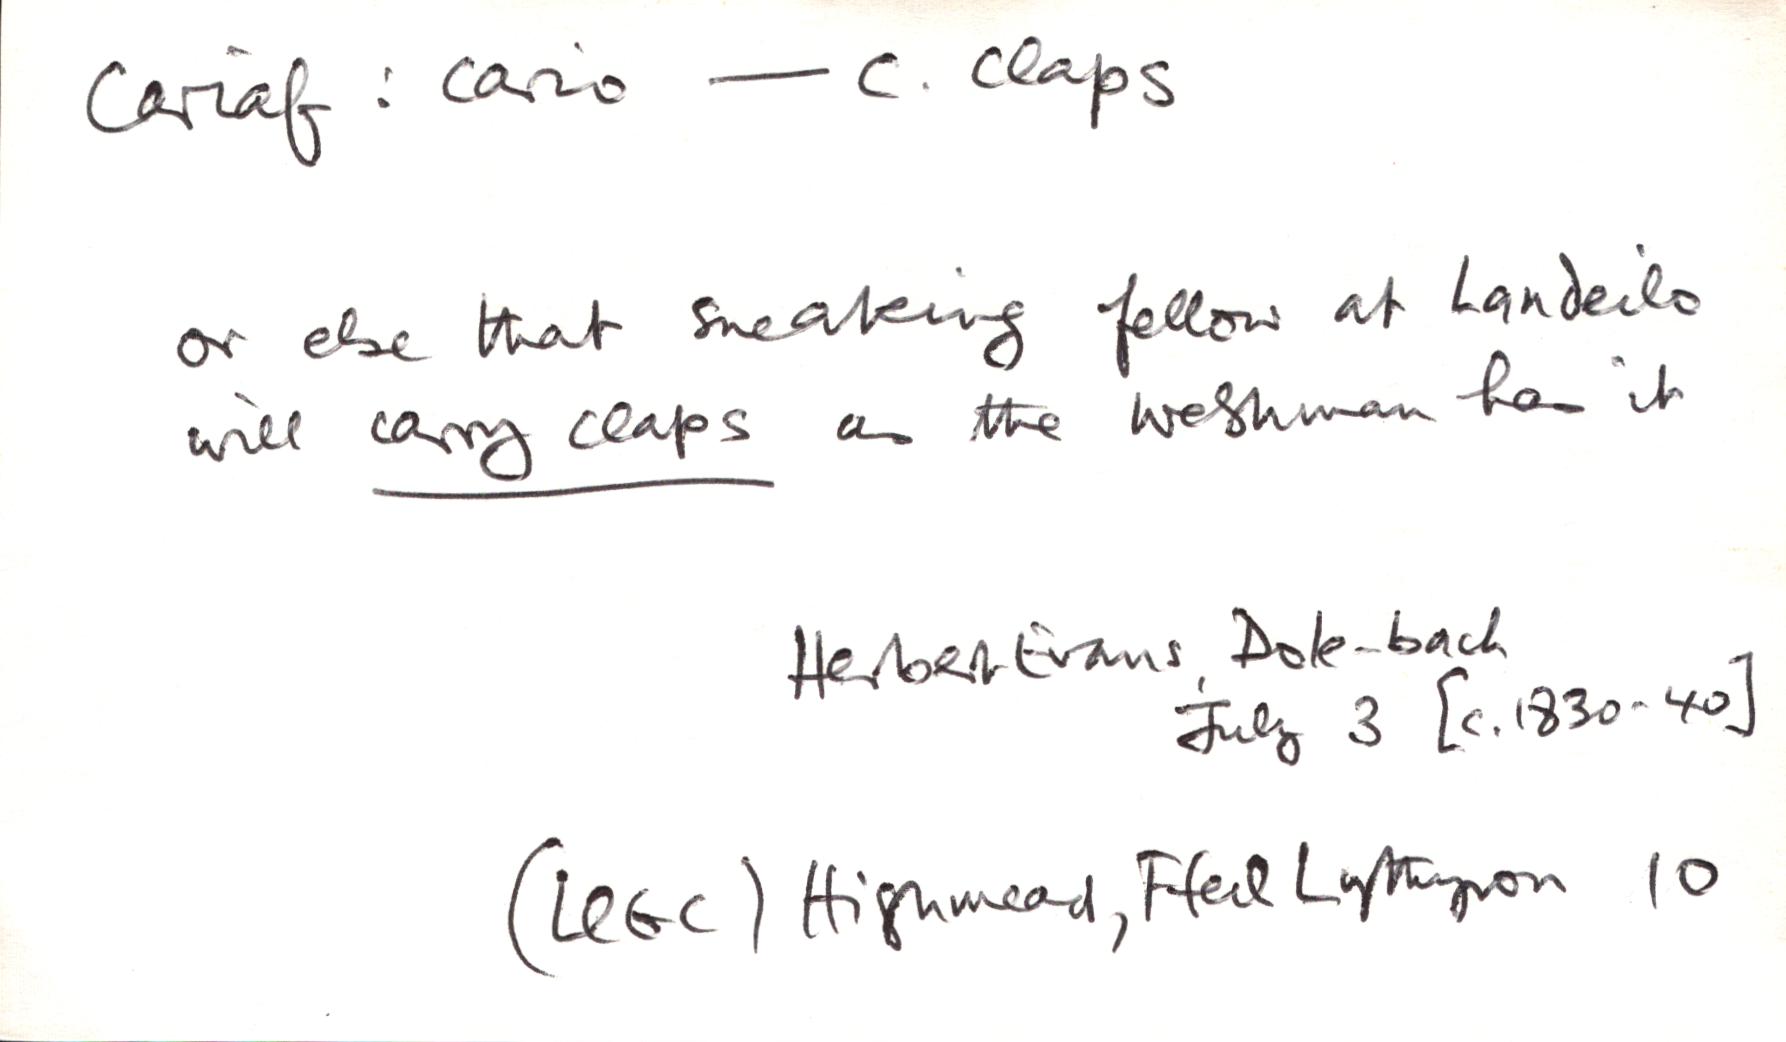 Cariaf : cario — c. claps
or else that sneaking fellow at Landeilo
will carry claps as the Welshman has it
Herbert Evans, Dole-bach
July 3 [c. 1830-40]
(LlGC) Highmead, Ffeil Lythyron 10